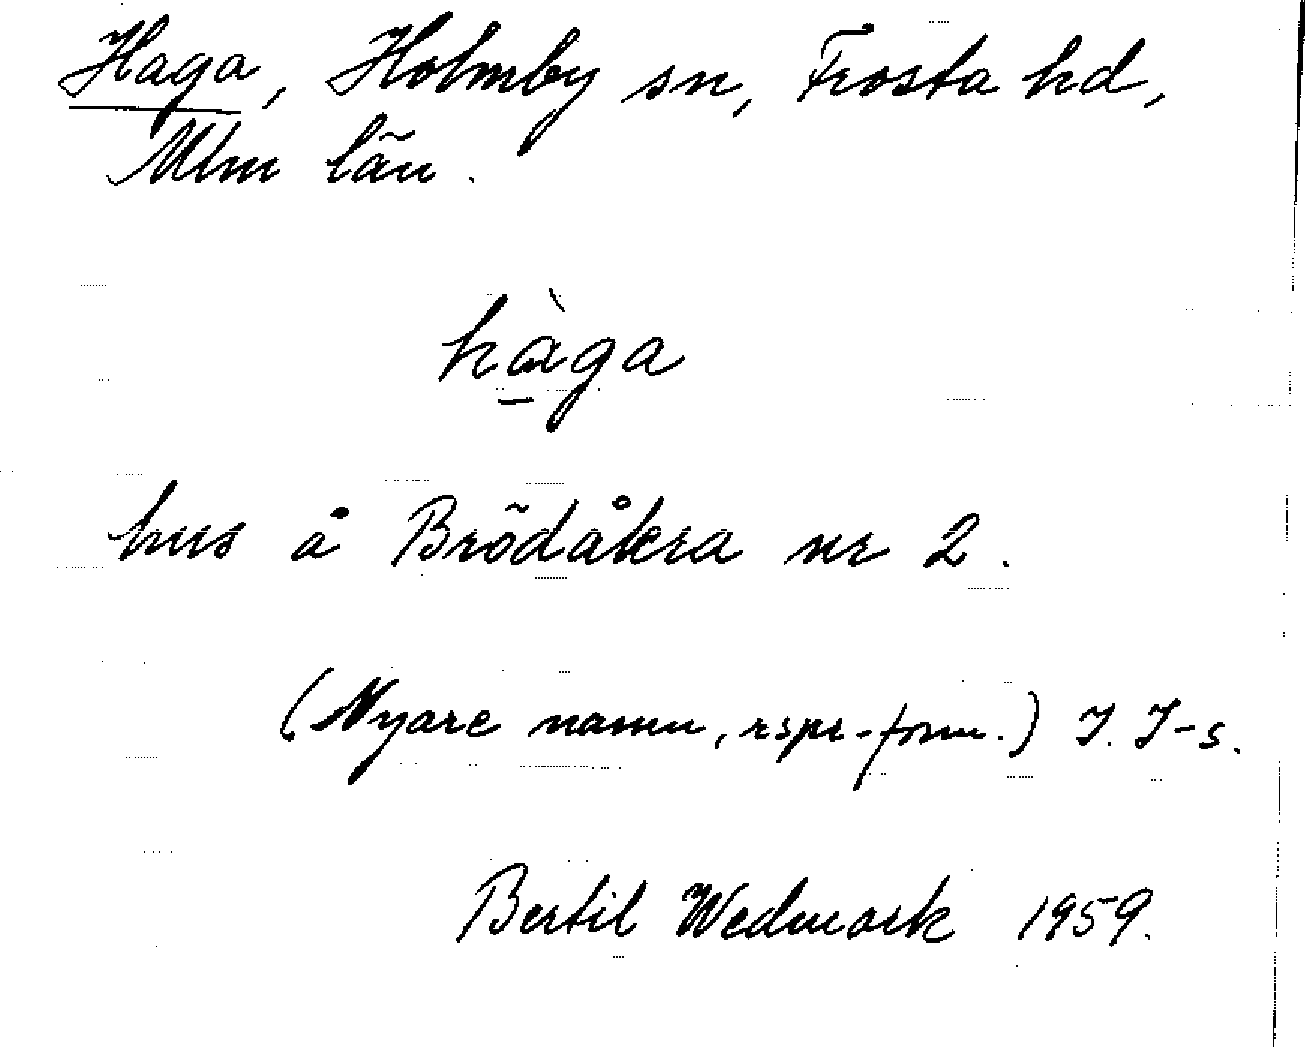 Haga, Holmby sn, Frosta hd,
Mlm län.
hàga
hus å Brödåkra nr 2.
(Nyare namn, rspr-form.) J. J-s.
Bertil Wedmark 1959.